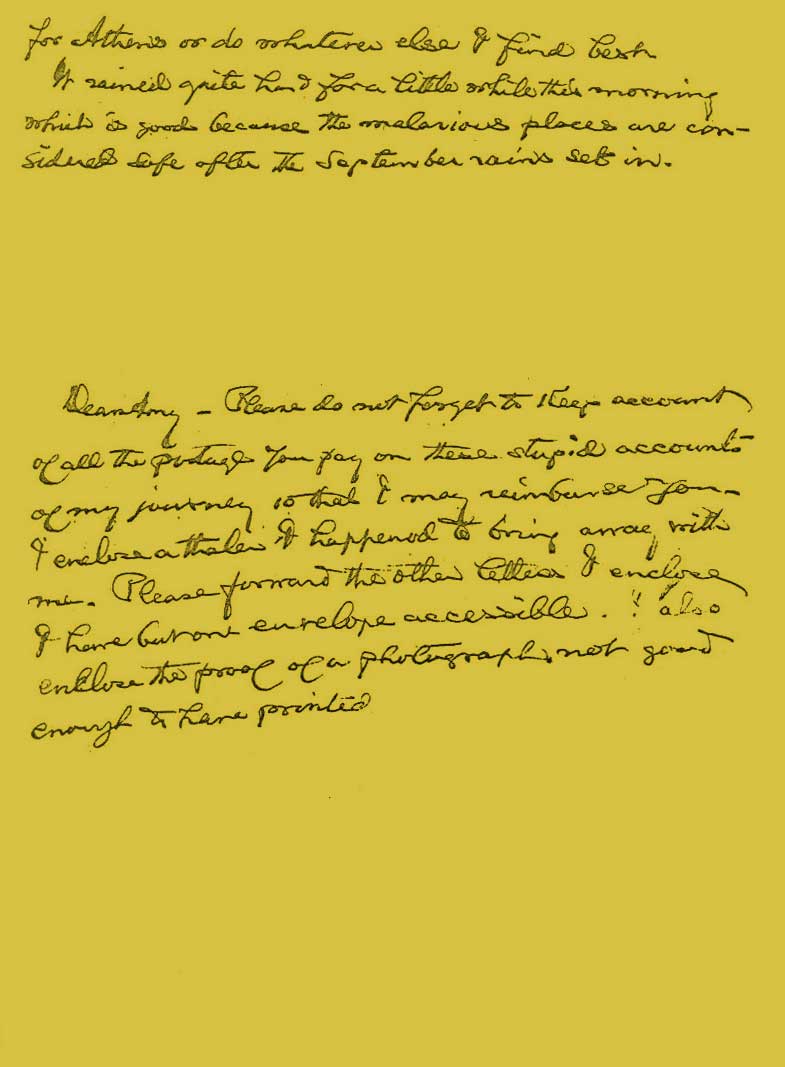 for Athens or do whatever else I find best
It rained quite hard for a little while this morning
which is good because the malarious places are con-
sidered safe after the September rains set in.
Dear Amy - Please do not forget to Keep account
of all the postage you pay on these stupid accounts
of my journey so that I may reimburse you -
I enclose a thaler I happened to bring away with
me. Please forward the other letters I enclose
I have but one envelope accessible. I also
enclose the proof of a photograph not good
enough to have printed